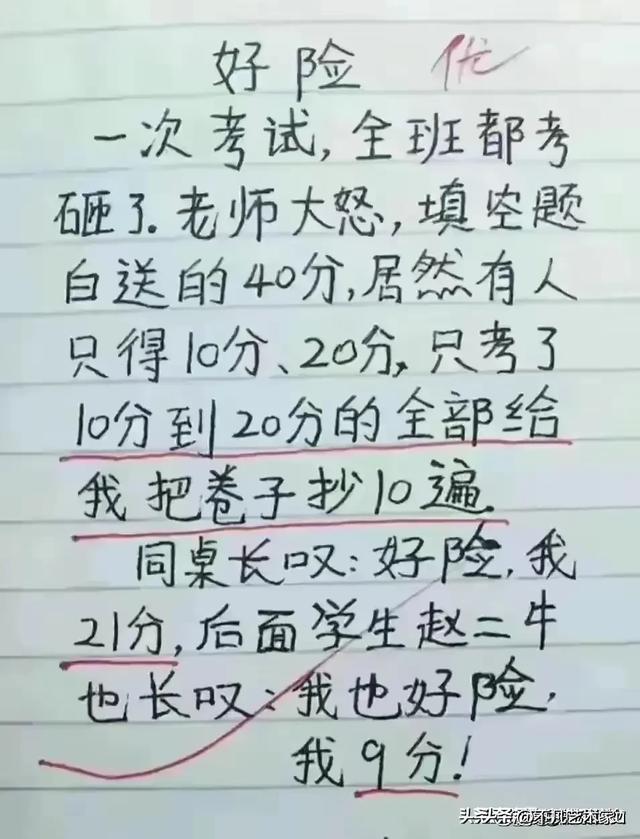 好险 优
一次考试,全班都考
砸了.老师大怒,填空题
白送的40分,居然有人
只得10分、20分,只考了
10分到20分的全部给
我把卷子抄10遍.
同桌长叹:好险,我
21分,后面学生赵二牛
也长叹:我也好险,
我9分!